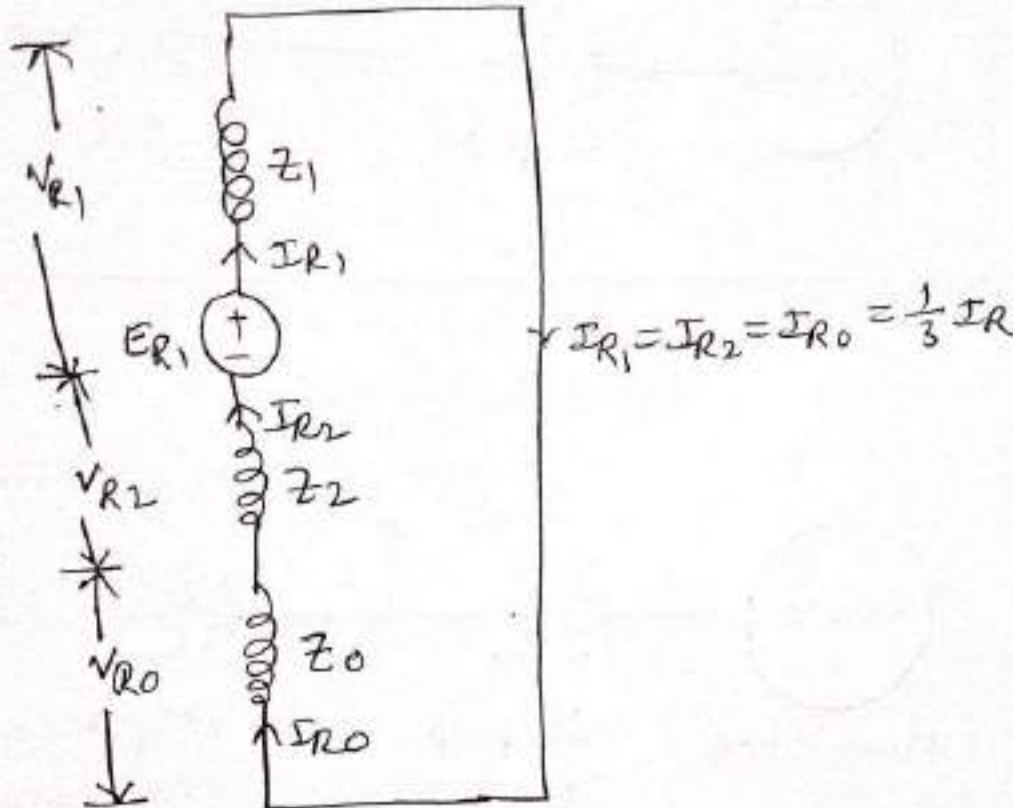 Z1
VR1
IR1
ER1
+
−
IR1 = IR2 = IR0 = 1/3 IR
IR2
VR2
Z2
Z0
VR0
IR0